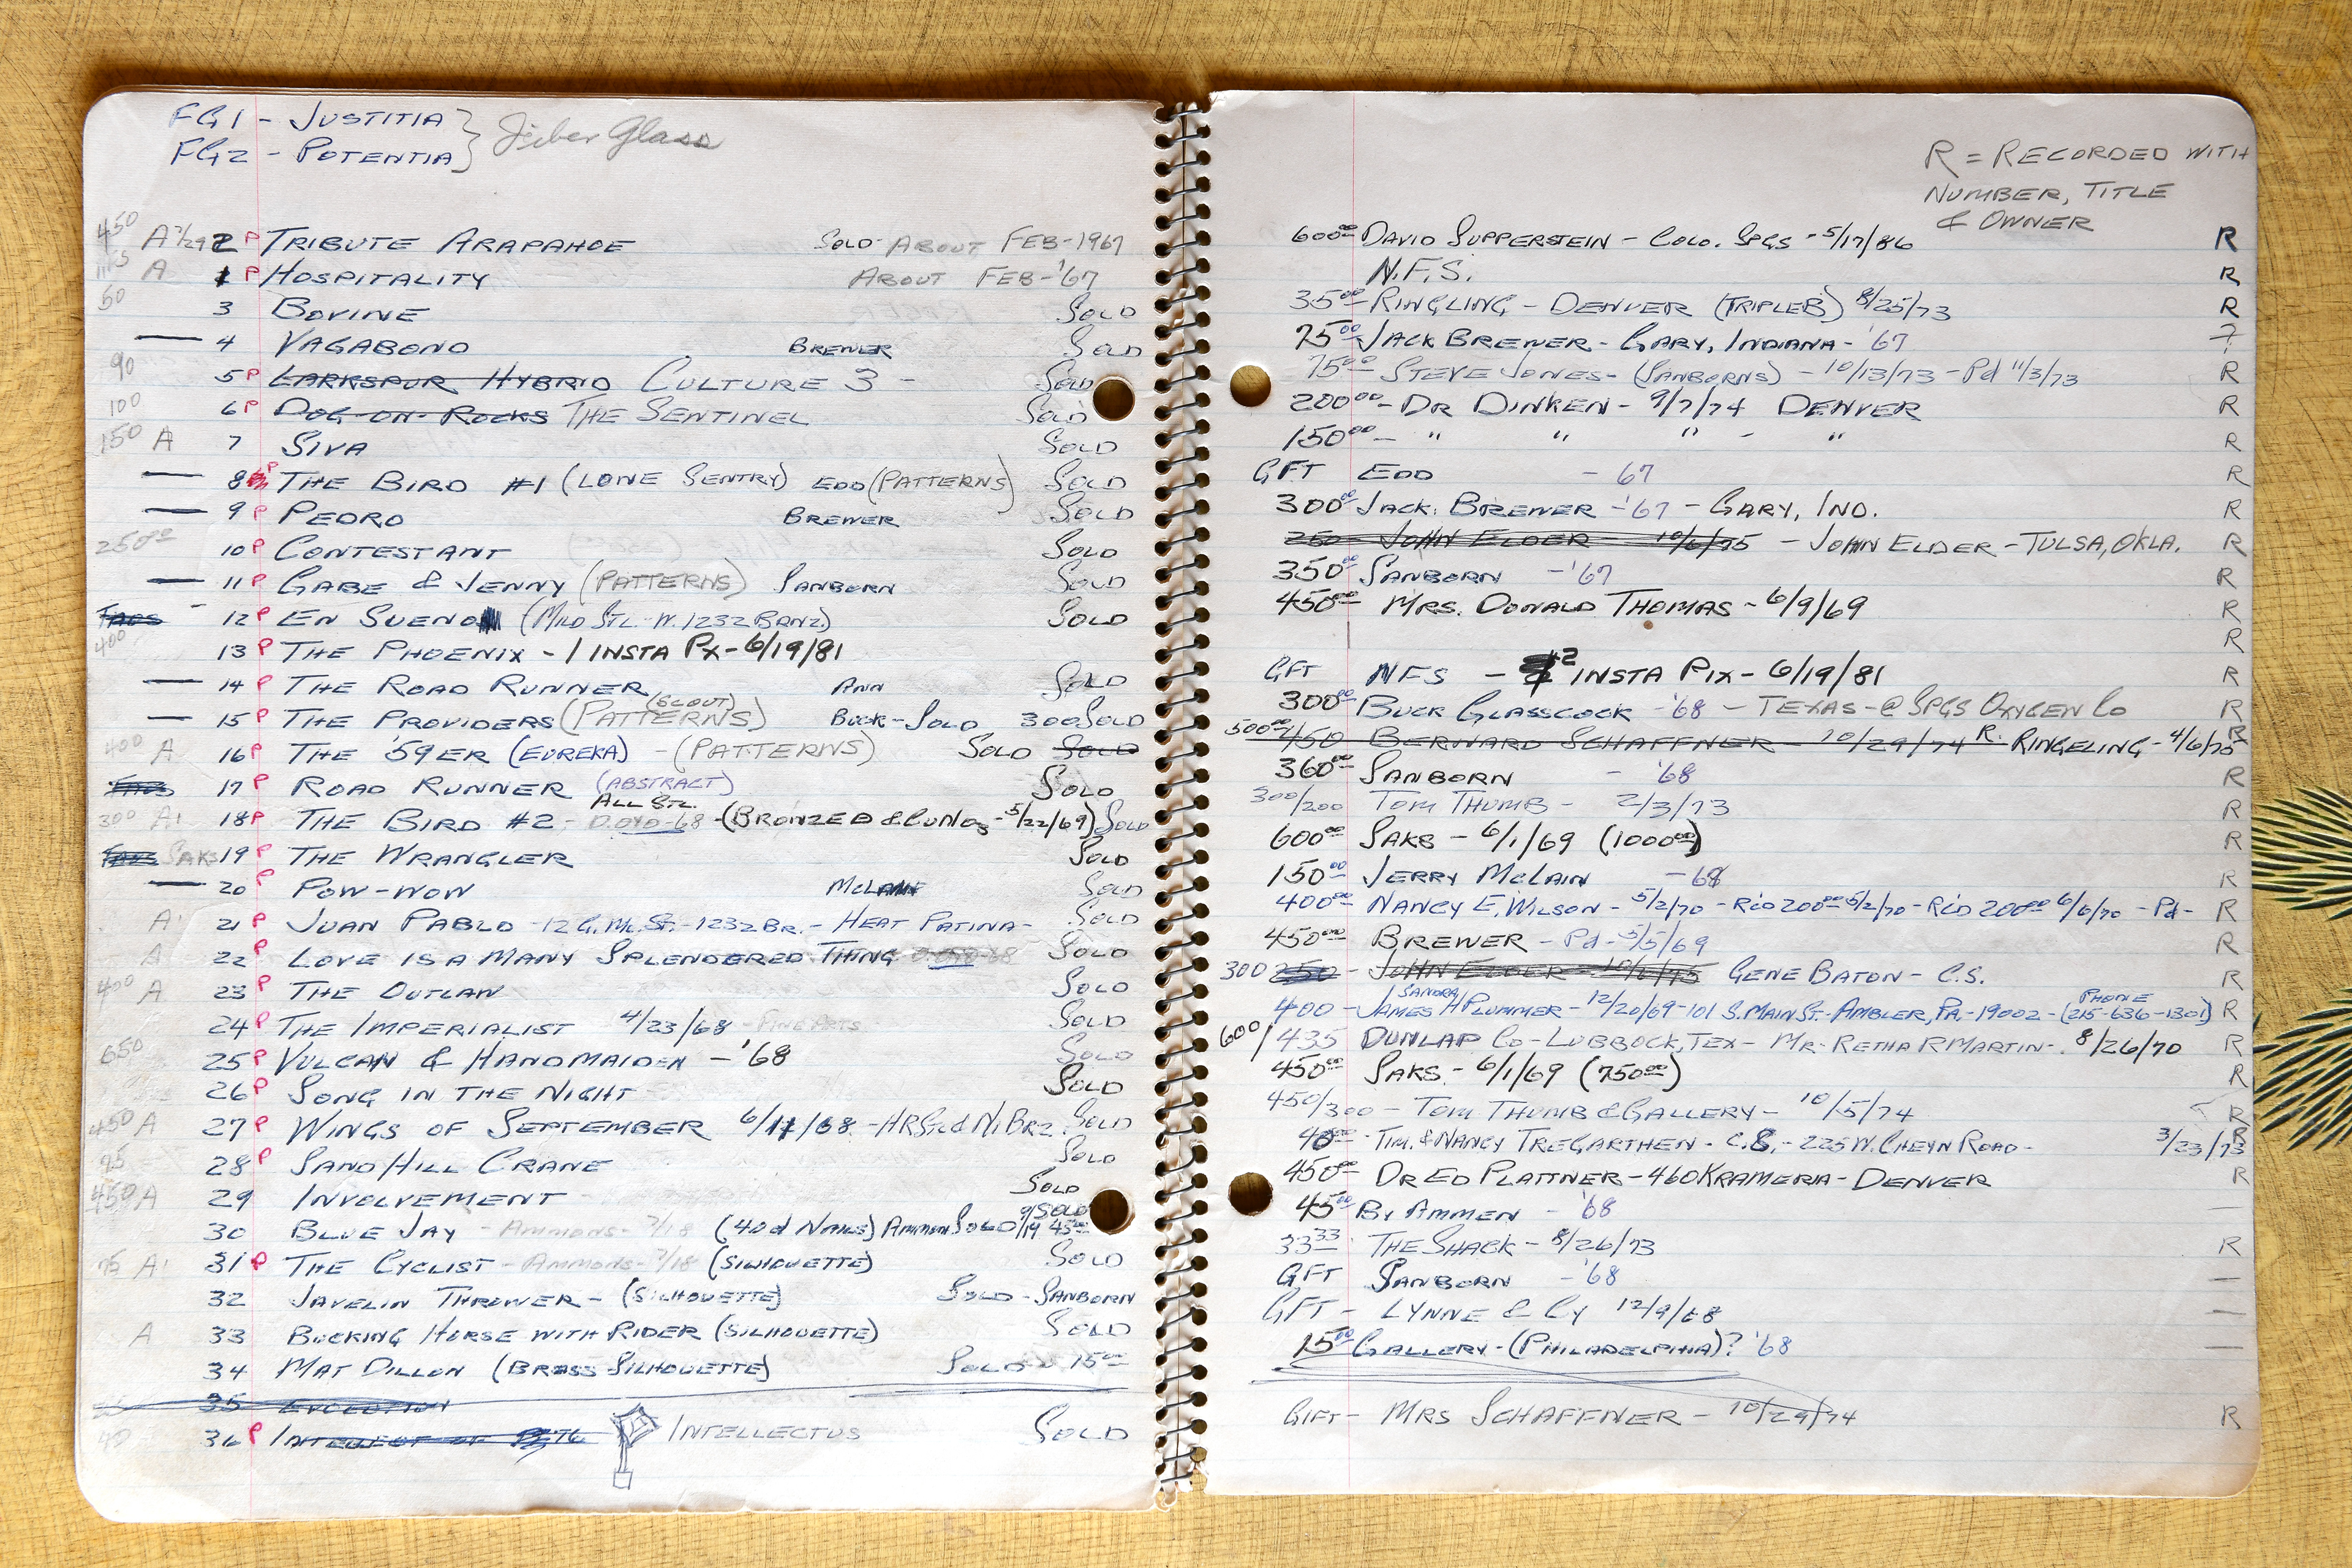 FG1 - JUSTITIA } Fiber Glass
FG2 - POTENTIA }
450 A 2 P TRIBUTE ARAPAHOE SOLD - ABOUT FEB-1967
A 1 P HOSPITALITY ABOUT FEB-'67
50 3 BOVINE SOLD
— 4 VAGABOND BREWER SOLD
90 5 P LARKSPUR HYBRID CULTURE 3 - SOLD
100 6 P DOG-ON-ROCKS THE SENTINEL SOLD
150 A 7 SIVA SOLD
— 8 P THE BIRD #1 (LONE SENTRY) EDD (PATTERNS) SOLD
— 9 P PEDRO BREWER SOLD
250 00 10 P CONTESTANT SOLD
— 11 P GABE & JENNY (PATTERNS) SANBORN SOLD
12 P EN SUENO (MILD STL. W. 1232 BRNZ.) SOLD
400 13 P THE PHOENIX - 1 INSTA PX - 6/19/81
— 14 P THE ROAD RUNNER ANN SOLD
— 15 P THE PROVIDERS (PATTERNS) (SCOUT) BUCK - SOLD 300 SOLD
400 A 16 P THE '59ER (EUREKA) - (PATTERNS) SOLD SOLD
17 P ROAD RUNNER (ABSTRACT) SOLD
300 A 18 P THE BIRD #2 - ALL STL. -68 - (BRONZED & - 5/22/69) SOLD
SAKS 19 P THE WRANGLER SOLD
— 20 P POW-WOW SOLD
A 21 P JUAN PABLO - 12 G. M. ST. - 1232 BR. - HEAT PATINA - SOLD
A 22 P LOVE IS A MANY SPLENDERED THING SOLD
400 A 23 P THE OUTLAW SOLD
24 P THE IMPERIALIST 4/23/68 - FINE ARTS SOLD
650 25 P VULCAN & HANDMAIDEN - '68 SOLD
26 P SONG IN THE NIGHT SOLD
450 A 27 P WINGS OF SEPTEMBER 6/11/68 - NI BRZ. SOLD
95 28 P SAND HILL CRANE SOLD
450 A 29 INVOLVEMENT SOLD
30 BLUE JAY - AMMONS - 7/18 (40d NAILS) AMMEN SOLD 9/19 45 00 SOLD
75 A 31 P THE CYCLIST - AMMONS - 7/18 (SILHOUETTE) SOLD
32 JAVELIN THROWER - (SILHOUETTE) SOLD - SANBORN
A 33 BUCKING HORSE WITH RIDER (SILHOUETTE) SOLD
34 MAT DILLON (BRASS SILHOUETTE) SOLD 15 00
35 EVOLUTION
40 36 P INTELLECT OF INTELLECTUS SOLD
R = RECORDED WITH
NUMBER, TITLE
& OWNER
600 00 DAVID SUPPERSTEIN - COLO. SPGS - 5/17/86 R
N.F.S. R
35 00 RINGLING - DENVER (TRIPLE B) 8/25/73 R
75 00 JACK BREWER - GARY, INDIANA - '67 ?
75 00 - STEVE JONES - (SANBORNS) - 10/13/73 - Pd 11/3/73 R
200 00 - DR DINKEN - 9/7/74 DENVER R
150 00 - " " " - " R
GFT EDD - 67 R
300 00 JACK BREWER - '67 - GARY, IND. R
250 - JOHN ELDER - 10/6/75 - JOHN ELDER - TULSA, OKLA. R
350 00 SANBORN - '67 R
450 00 MRS. DONALD THOMAS - 6/9/69 R
R
GFT NFS - #2 INSTA PIX - 6/19/81 R
300 00 BUCK GLASSCOCK '68 - TEXAS - @ SPGS OXYGEN CO R
500 00 450 BERNARD SCHAFFNER - 10/29/74 R. RINGELING - 4/6/70 R
360 00 SANBORN - '68 R
300/200 TOM THUMB - 2/3/73 R
600 00 SAKS - 6/1/69 (1000 00) R
150 00 JERRY MCLAIN - 68 R
400 00 NANCY E. WILSON - 5/2/70 - RCD 200 00 5/2/70 - RCD 200 00 6/6/70 - Pd - R
450 00 BREWER - Pd - 5/5/69 R
300 250 - JOHN ELDER - 10/6/75 GENE BATON - C.S. R
400 - JAMES SANDRA H PLUMMER - 12/20/69 - 101 S. MAIN ST. - AMBLER, PA. - 19002 - (PHONE 215-636-1301) R
600/435 DUNLAP CO - LUBBOCK, TEX - MR. RETHA R MARTIN - 8/26/70 R
450 00 SAKS - 6/1/69 (750 00) R
450/300 - TOM THUMB & GALLERY - 10/5/74 R
40 00 - TIM. & NANCY TREGARTHEN - C.S. - 225 W. CHEYN ROAD - 3/23/73 R
450 00 DR ED PLATTNER - 460 KRAMERIA - DENVER R
45 00 BY AMMEN - '68 —
33 33 THE SHACK - 8/26/73 R
GFT SANBORN - '68 —
GFT - LYNNE & CY 12/9/68 —
15 00 GALLERY - (PHILADELPHIA)? '68 —
GIFT - MRS SCHAFFNER - 10/29/74 R